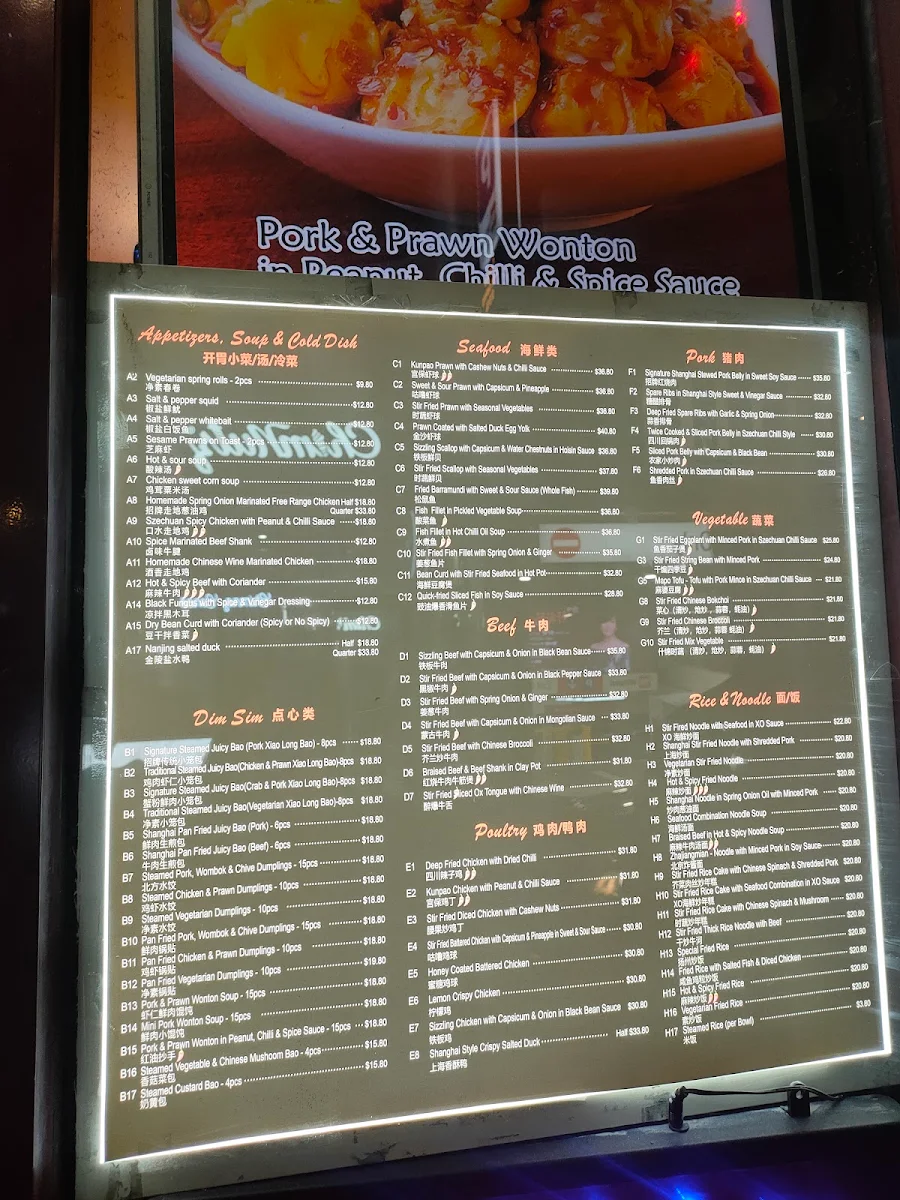 Pork & Prawn Wonton
in Peanut, Chilli & Spice Sauce
Appetizers, Soup & Cold Dish
开胃小菜/汤/冷菜
A2 Vegetarian spring rolls - 2pcs $9.80
净素春卷
A3 Salt & pepper squid $12.80
椒盐鲜鱿
A4 Salt & pepper whitebait $12.80
椒盐白饭鱼
A5 Sesame Prawns on Toast - 2pcs $12.80
芝麻虾
A6 Hot & sour soup $12.80
酸辣汤
A7 Chicken sweet corn soup $12.80
鸡茸粟米汤
A8 Homemade Spring Onion Marinated Free Range Chicken Half $18.80
招牌走地葱油鸡 Quarter $33.80
A9 Szechuan Spicy Chicken with Peanut & Chilli Sauce $18.80
口水走地鸡
A10 Spice Marinated Beef Shank $12.80
卤味牛腱
A11 Homemade Chinese Wine Marinated Chicken $18.80
酒香走地鸡
A12 Hot & Spicy Beef with Coriander $15.80
麻辣牛肉
A14 Black Fungus with Spice & Vinegar Dressing $12.80
凉拌黑木耳
A15 Dry Bean Curd with Coriander (Spicy or No Spicy) $12.80
豆干拌香菜
A17 Nanjing salted duck Half $18.80
金陵盐水鸭 Quarter $33.80
Dim Sim 点心类
B1 Signature Steamed Juicy Bao (Pork Xiao Long Bao) - 8pcs $18.80
招牌传统小笼包
B2 Traditional Steamed Juicy Bao(Chicken & Prawn Xiao Long Bao)-8pcs $18.80
鸡肉虾仁小笼包
B3 Signature Steamed Juicy Bao(Crab & Pork Xiao Long Bao)-8pcs $18.80
蟹粉鲜肉小笼包
B4 Traditional Steamed Juicy Bao(Vegetarian Xiao Long Bao)-8pcs $18.80
净素小笼包
B5 Shanghai Pan Fried Juicy Bao (Pork) - 6pcs $18.80
鲜肉生煎包
B6 Shanghai Pan Fried Juicy Bao (Beef) - 6pcs $18.80
牛肉生煎包
B7 Steamed Pork, Wombok & Chive Dumplings - 15pcs $18.80
北方水饺
B8 Steamed Chicken & Prawn Dumplings - 10pcs $18.80
鸡虾水饺
B9 Steamed Vegetarian Dumplings - 10pcs $18.80
净素水饺
B10 Pan Fried Pork, Wombok & Chive Dumplings - 15pcs $18.80
鲜肉锅贴
B11 Pan Fried Chicken & Prawn Dumplings - 10pcs $18.80
鸡虾锅贴
B12 Pan Fried Vegetarian Dumplings - 10pcs $19.80
净素锅贴
B13 Pork & Prawn Wonton Soup - 15pcs $18.80
虾仁鲜肉馄饨
B14 Mini Pork Wonton Soup - 15pcs $18.80
鲜肉小馄饨
B15 Pork & Prawn Wonton in Peanut, Chilli & Spice Sauce - 15pcs $18.80
红油抄手
B16 Steamed Vegetable & Chinese Mushoom Bao - 4pcs $15.80
香菇菜包
B17 Steamed Custard Bao - 4pcs $15.80
奶黄包
Seafood 海鲜类
C1 Kunpao Prawn with Cashew Nuts & Chilli Sauce $36.80
宫保虾球
C2 Sweet & Sour Prawn with Capsicum & Pineapple $36.80
咕噜虾球
C3 Stir Fried Prawn with Seasonal Vegetables $36.80
时蔬虾球
C4 Prawn Coated with Salted Duck Egg Yolk $40.80
金沙虾球
C5 Sizzling Scallop with Capsicum & Water Chestnuts in Hoisin Sauce $36.80
铁板鲜贝
C6 Stir Fried Scallop with Seasonal Vegetables $37.80
时蔬鲜贝
C7 Fried Barramundi with Sweet & Sour Sauce (Whole Fish) $39.80
松鼠鱼
C8 Fish Fillet in Pickled Vegetable Soup $36.80
酸菜鱼
C9 Fish Fillet in Hot Chilli Oil Soup $36.80
水煮鱼
C10 Stir Fried Fish Fillet with Spring Onion & Ginger $35.80
姜葱鱼片
C11 Bean Curd with Stir Fried Seafood in Hot Pot $32.80
海鲜豆腐煲
C12 Quick-fried Sliced Fish In Soy Sauce $28.80
豉油爆香滑鱼片
Beef 牛肉
D1 Sizzling Beef with Capsicum & Onion in Black Bean Sauce $35.80
铁板牛肉
D2 Stir Fried Beef with Capsicum & Onion in Black Pepper Sauce $33.80
黑椒牛肉
D3 Stir Fried Beef with Spring Onion & Ginger $32.80
姜葱牛肉
D4 Stir Fried Beef with Capsicum & Onion in Mongolian Sauce $33.80
蒙古牛肉
D5 Stir Fried Beef with Chinese Broccoli $32.80
芥兰炒牛肉
D6 Braised Beef & Beef Shank in Clay Pot $31.80
红烧牛肉牛筋煲
D7 Stir Fried Sliced Ox Tongue with Chinese Wine $32.80
醉爆牛舌
Poultry 鸡肉/鸭肉
E1 Deep Fried Chicken with Dried Chilli $31.80
四川辣子鸡
E2 Kunpao Chicken with Peanut & Chilli Sauce $31.80
宫保鸡丁
E3 Stir Fried Diced Chicken with Cashew Nuts $31.80
腰果炒鸡丁
E4 Stir Fried Battered Chicken with Capsicum & Pineapple in Sweet & Sour Sauce $30.80
咕噜鸡球
E5 Honey Coated Battered Chicken $30.80
蜜糖鸡球
E6 Lemon Crispy Chicken $30.80
柠檬鸡
E7 Sizzling Chicken with Capsicum & Onion in Black Bean Sauce $30.80
铁板鸡
E8 Shanghai Style Crispy Salted Duck Half $33.80
上海香酥鸭
Pork 猪肉
F1 Signature Shanghai Stewed Pork Belly in Sweet Soy Sauce $35.80
招牌红烧肉
F2 Spare Ribs in Shanghai Style Sweet & Vinegar Sauce $32.80
糖醋排骨
F3 Deep Fried Spare Ribs with Garlic & Spring Onion $32.80
蒜香排骨
F4 Twice Cooked & Sliced Pork Belly in Szechuan Chilli Style $30.80
四川回锅肉
F5 Sliced Pork Belly with Capsicum & Black Bean $30.80
农家小炒肉
F6 Shredded Pork in Szechuan Chilli Sauce $26.80
鱼香肉丝
Vegetable 蔬菜
G1 Stir Fried Eggplant with Minced Pork in Szechuan Chilli Sauce $25.80
鱼香茄子煲
G3 Stir Fried String Bean with Minced Pork $24.80
干煸四季豆
G5 Mapo Tofu - Tofu with Pork Mince in Szechuan Chilli Sauce $21.80
麻婆豆腐
G8 Stir Fried Chinese Bokchoi $21.80
菜心（清炒，炝炒，蒜蓉，蚝油）
G9 Stir Fried Chinese Broccoli $21.80
芥兰（清炒，炝炒，蒜蓉，蚝油）
G10 Stir Fried Mix Vegetable $21.80
什锦时蔬（清炒，炝炒，蒜蓉，蚝油）
Rice & Noodle 面/饭
H1 Stir Fired Noodle with Seafood in XO Sauce $22.80
XO 海鲜炒面
H2 Shanghai Stir Fried Noodle with Shredded Pork $20.80
上海炒面
H3 Vegetarian Stir Fried Noodle $20.80
净素炒面
H4 Hot & Spicy Fried Noodle $20.80
麻辣炒面
H5 Shanghai Noodle in Spring Onion Oil with Minced Pork $20.80
炒肉葱油面
H6 Seafood Combination Noodle Soup $20.80
海鲜汤面
H7 Braised Beef in Hot & Spicy Noodle Soup $20.80
麻辣牛肉汤面
H8 Zhajiangmian - Noodle with Minced Pork in Soy Sauce $20.80
北京炸酱面
H9 Stir Fried Rice Cake with Chinese Spinach & Shredded Pork $20.80
芥菜肉丝炒年糕
H10 Stir Fried Rice Cake with Seafood Combination in XO Sauce $20.80
XO海鲜炒年糕
H11 Stir Fried Rice Cake with Chinese Spinach & Mushroom $20.80
时蔬炒年糕
H12 Stir Fried Thick Rice Noodle with Beef $20.80
干炒牛河
H13 Special Fried Rice $20.80
扬州炒饭
H14 Fried Rice with Salted Fish & Diced Chicken $20.80
咸鱼鸡粒炒饭
H15 Hot & Spicy Fried Rice $20.80
麻辣炒饭
H16 Vegetarian Fried Rice $20.80
素炒饭
H17 Steamed Rice (per Bowl) $3.80
米饭